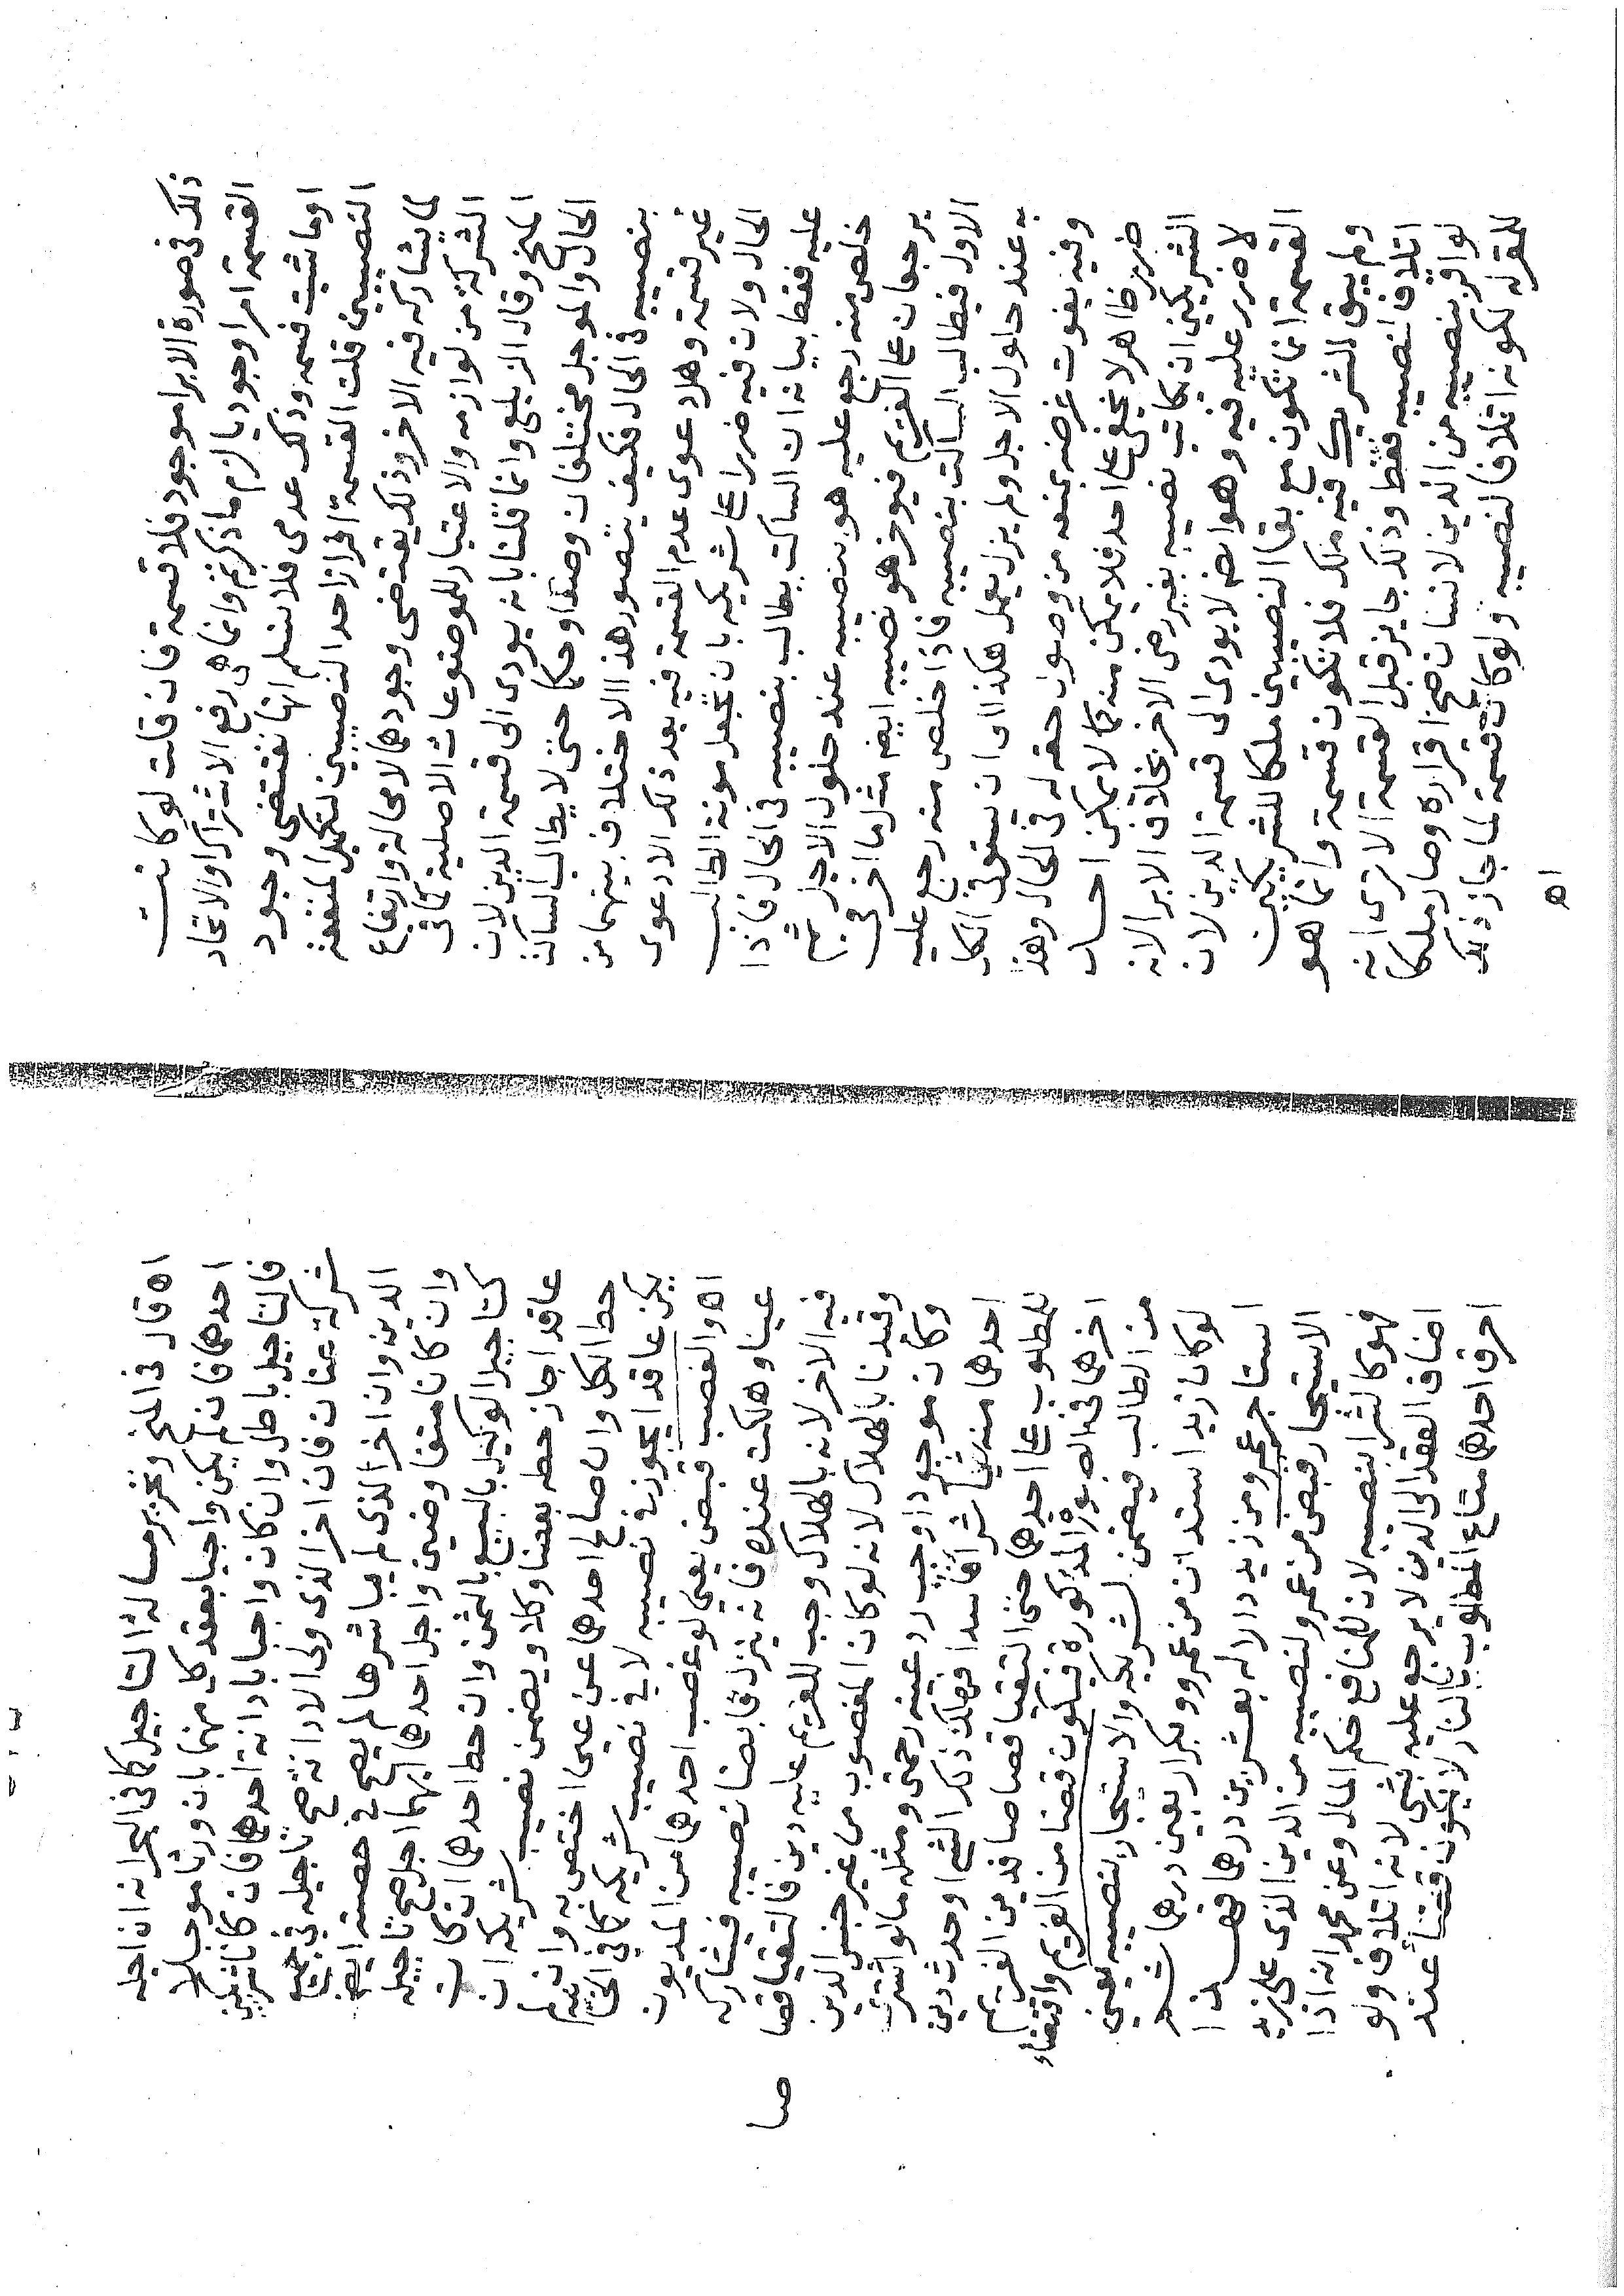 ذلك في صورة الابرا موجود فلا قسمة فان قلت لو كانت
القسمة امرا وجوديا لزم ما ذكرتم وانما هي رفع الاشتراك والاتحاد
او ما شيت فسمه وذلك عدمى فلا نسلم انها تقتضى وجود
النصيبين قلت القسمة افرازا حد النصيبين لتكميل المنفعة
لما يشاركه فيه الاخر وذلك يقتضى وجودهما لا محالة وارتفاع
الشركة من لوازمه والاعتبار للموضوعات الاصلية كما فى
المنح وقال الزيلعى وانما قلنا بانه يودى الى قسمة الدين لان
الحال والموجل مختلفان وصفا وحكما حتى لا يطالب الساكت
بنصيبه فى الحال فكيف يتصور هذا الاختلاف بينهما من
غير قسمة وهل دعوى عدم القسمة فيه بعد ذلك الا دعوى
الحال ولان فيه ضررا على شريكه بان تجعل مونة الطالب
عليه فقط بيانه ان الساكت يطالب بنصيبه فى الحال فاذا
خلص منه رجع عليه هو بنصيبه عند حلول الاجل ثم
يرجعان على الغريم فيوخر هو نصيبه ايضا مثل ما اخر فى
الاول فيطالب الساكت بنصيبه فاذا خلص منه رجع عليه
به عند حلول الاجل ولم يزل يعمل هكذا الى ان يستوفى الكل
وفيه يفوت غرضه بمنعه من وصول حقه له فى الحال وهذ
ضرر ظاهر لا يخفى على احد فلا يمكن منه كما لا يمكن احد
الشريكين ان يكاتب نصيبه بغير رضى الاخر بخلاف الابرا لانه
لا ضرر عليه فيه وهو ايضا لا يودى الى قسمة الدين لان
القسمة انما تكون مع بقا النصيبين ملكا للشريكين
ولم يبق للشريك فيه ملك فلا تكون قسمة وانما هو
اتلاف لنصيبه فقط وذلك جايز قبل القسمة الا ترى انه
لو اقر بنصيبه من الدين لانسان صح اقراره وصار ملكا
للمقر له لكونه اتلافا لنصيبه ولو كان قسمة لما جاز ذلك
اه
اه قال فى المنح وتحرير مسالة التاجيل كما فى البحر انه ان اجله
احدهما فان لم يكن واجبا بعقد كل منهما بان ورثا موجلا
فالتاجيل باطل وان كان واجبا بادانة احدهما فان كانا شريكين
شركة عنان فان اخر الذى ولى الادانة صح تاجيله فى جميع
الدين وان اخر الذى لم يباشرها لم يصح فى حصته ايضا
وان كانا متفاوضين واجل احدهما ايهما اجل صح تاجيله
كتاجيل الوكيل بالبيع بالثمن وان حط احدهما ان كان
عاقدا جاز حطه بعضا وكلا ويضمن نصيب شريكه ان
حط الكل وان صالح احدهما عن عين اختص به وان لم
يكن عاقدا يجوز فى نصيبه لا فى نصيب شريكه كما فى الخا
اه والغصب قبض يعنى لو غصب احدهما من المديون
عينا وهلكت عنده فانه ينزل قابضا نصيبه فيشاركه
فيه الاخر لانه بالهلاك وجب للغريم عليه دين فالتقيا قصا
صا
وقيدنا بالهلاك لانه لو كان المغصوب من غير جنس الدين
وكان موجودا وجب رد عينه رحمتى ومثله ما لو اشترى
احدهما منه شيا شرا فاسدا فهلك ذكر الشراء وحدث دين
للمطلوب على احدهما حتى التقيا قصاصا فدين الغريم
اخرهما فى الصورة المذكورة فيكون قضا من الغريم واقتضاء
من الطالب فيضمن لشريكه والاستيجار بنصيبه يعنى
لو كان زيدا استدان من عمرو وبكر اربعين درهما ثم
استاجر عمرو من زيد دارا له بعشرين درهما فهذا
الاستيجار قبض من عمرو لنصيبه من الدين الذى على زيد
فهو كالشرا بنصيبه لان للمنافع حكم المال وعن محمد انه اذا
اضاف العقد الى الدين لا يرجع عليه بشى لانه اتلاف ولو
احرق احدهما متاع المطلوب بالنار لا يكون قبضا عند